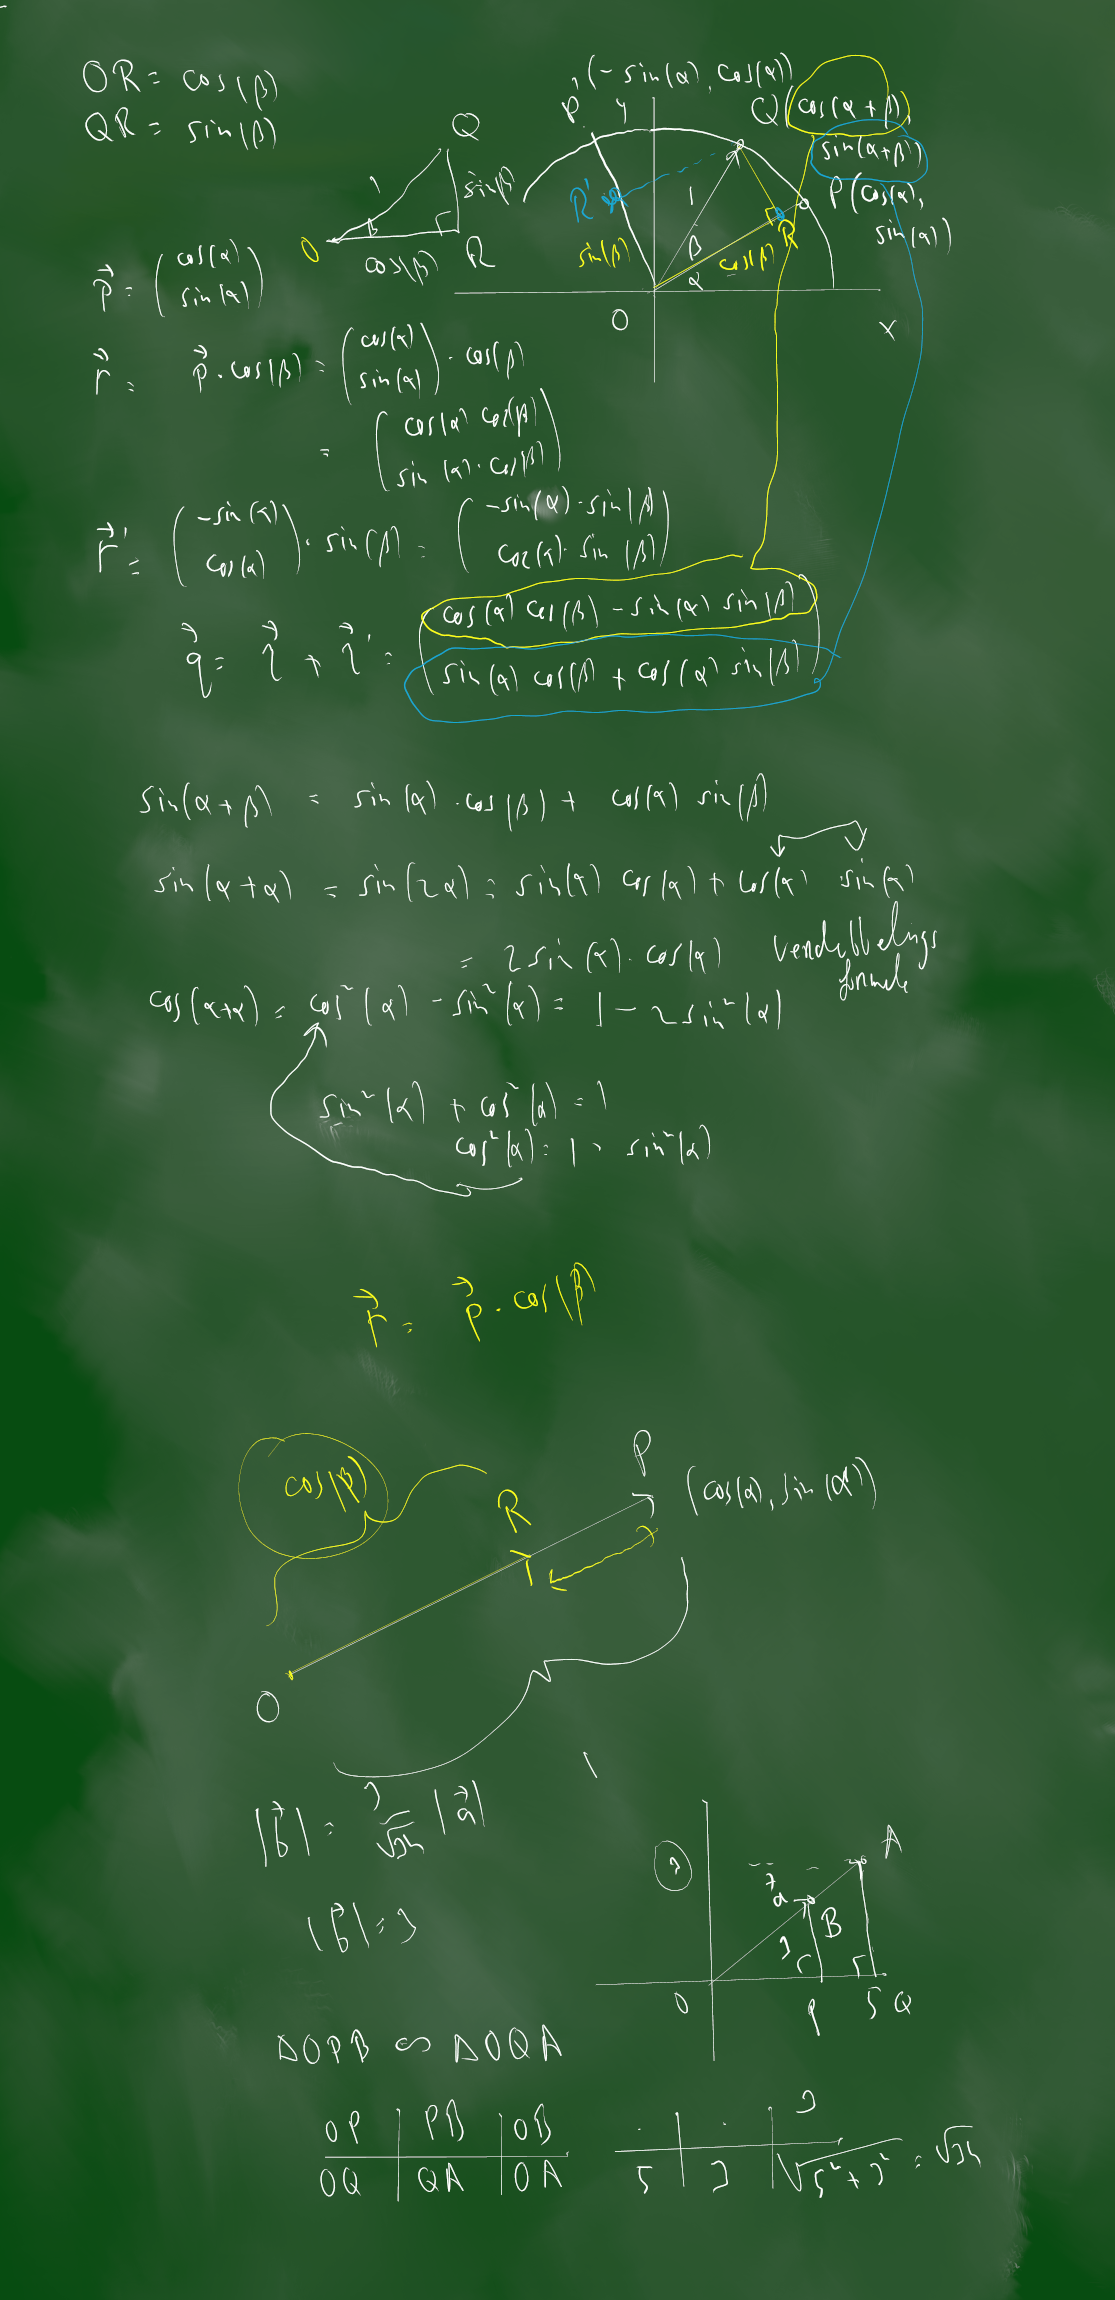 OR = cos(β)
QR = sin(β)
Q
1
sin(β)
β
O
cos(β)
R
P' (-sin(α), cos(α))
y
Q(cos(α+β),
sin(α+β))
P(cos(α),
sin(α))
R'
1
sin(β)
β
cos(β)
R
α
O
x
p⃗ = (cos(α)
sin(α))
r⃗ = p⃗ · cos(β) = (cos(α)
sin(α)) · cos(β)
= (cos(α) cos(β)
sin(α) · cos(β))
r⃗' = (-sin(α)
cos(α)) · sin(β) = (-sin(α) · sin(β)
cos(α) · sin(β))
q⃗ = r⃗ + r⃗' = (cos(α) cos(β) - sin(α) sin(β)
sin(α) cos(β) + cos(α) sin(β))
sin(α+β) = sin(α) · cos(β) + cos(α) sin(β)
sin(α+α) = sin(2α) = sin(α) cos(α) + cos(α) · sin(α)
= 2 sin(α) · cos(α)
verdubbelings
formule
cos(α+α) = cos²(α) - sin²(α) = 1 - 2 sin²(α)
sin²(α) + cos²(α) = 1
cos²(α) = 1 - sin²(α)
r⃗ = p⃗ · cos(β)
cos(β)
R
P
(cos(α), sin(α))
O
1
|b⃗| = 3/√34 |a⃗|
|b⃗| = 3
3
A
a⃗
B
3
O
P
5 Q
ΔOPB ∽ ΔOQA
OP | PB | OB
OQ | QA | OA
· | · | 3
5 | 3 | √5²+3² = √34